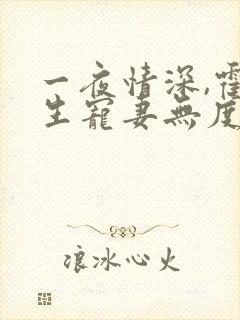 一夜情深,霍
生寵妻無度
浪冰心火